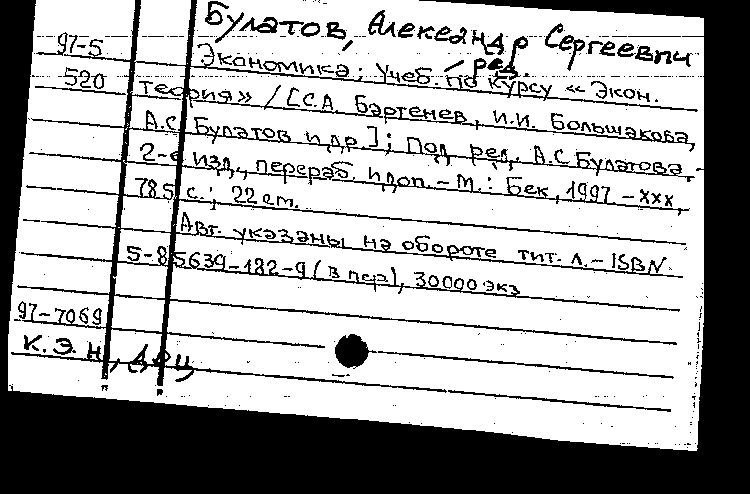 Булатов, Александр Сергеевич
97-5
ред.
520
Экономика: Учеб. по курсу « Экон.
теория» / [С.А. Бартенев, И.И. Большакова,
А.С. Булатов и др.]; Под ред. А.С Булатова.-
2-е изд., перераб. и доп. - М.: Бек, 1997 - XXX,
785 с.; 22 см.
Авт. указаны на обороте тит. л. - ISBN
5-85639-182-9 (в пер), 30000 экз
97-7069
К.Э.Н, ДОЦ